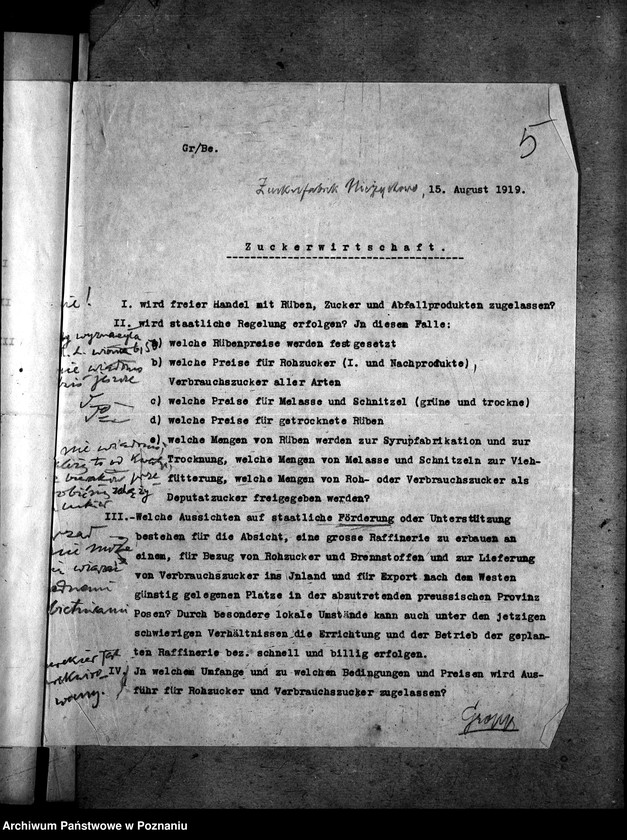 5
Gr/Be.
Zuckerfabrik , 15. August 1919.
Zuckerwirtschaft.
nie! I. wird freier Handel mit Rüben, Zucker und Abfallprodukten zugelassen?
II. wird staatliche Regelung erfolgen? Jn diesem Falle:
wyznaczyła a) welche Rübenpreise werden festgesetzt
nie wiadomo b) welche Preise für Rohzucker (I. und Nachprodukte),
jeszcze Verbrauchszucker aller Arten
c) welche Preise für Melasse und Schnitzel (grüne und trockne)
d) welche Preise für getrocknete Rüben
nie wiadomo, e) welche Mengen von Rüben werden zur Syrupfabrikation und zur
Trocknung, welche Mengen von Melasse und Schnitzeln zur Vieh-
fütterung, welche Mengen von Roh- oder Verbrauchszucker als
Deputatzucker freigegeben werden?
III.-Welche Aussichten auf staatliche Förderung oder Unterstützung
nie może bestehen für die Absicht, eine grosse Raffinerie zu erbauen an
einem, für Bezug von Rohzucker und Brennstoffen und zur Lieferung
von Verbrauchszucker ins Jnland und für Export nach dem Westen
günstig gelegenen Platze in der abzutretenden preussischen Provinz
Posen? Durch besondere lokale Umstände kann auch unter den jetzigen
schwierigen Verhältnissen die Errichtung und der Betrieb der geplan-
ten Raffinerie bez. schnell und billig erfolgen.
IV. Jn welchem Umfange und zu welchen Bedingungen und Preisen wird Aus-
führ für Rohzucker und Verbrauchszucker zugelassen?
Gropp
Archiwum Państwowe w Poznaniu